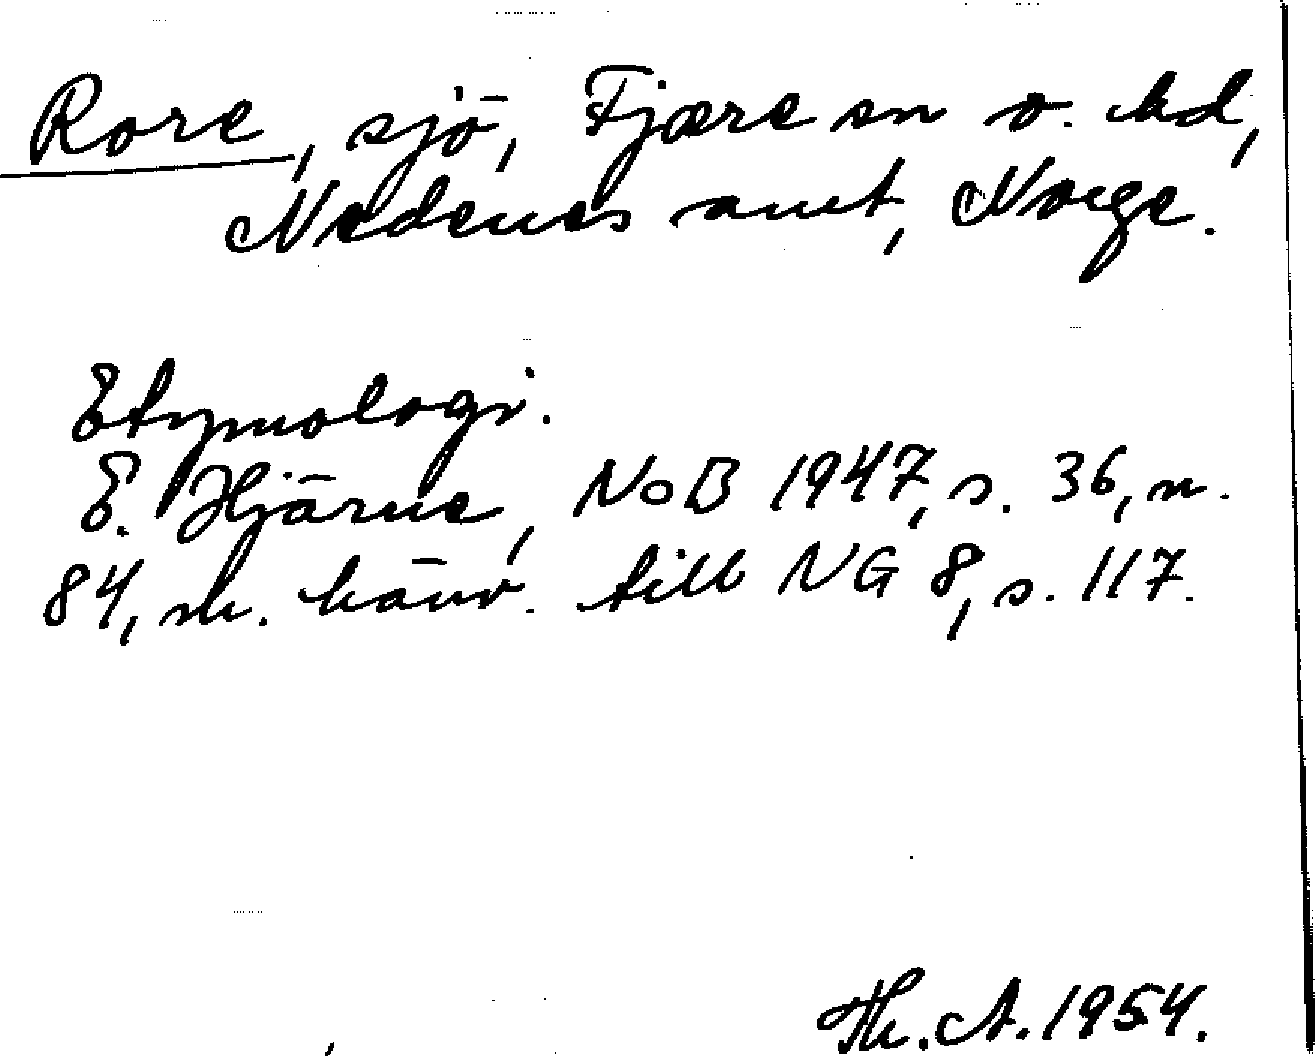 Rore, sjö, Fjære sn o. hd,
Nedenes amt, Norge.
Etymologi.
E. Hjärne, NoB 1947, s. 36, n.
84, m. hänv. till NG 8, s. 117.
Th. A. 1954.